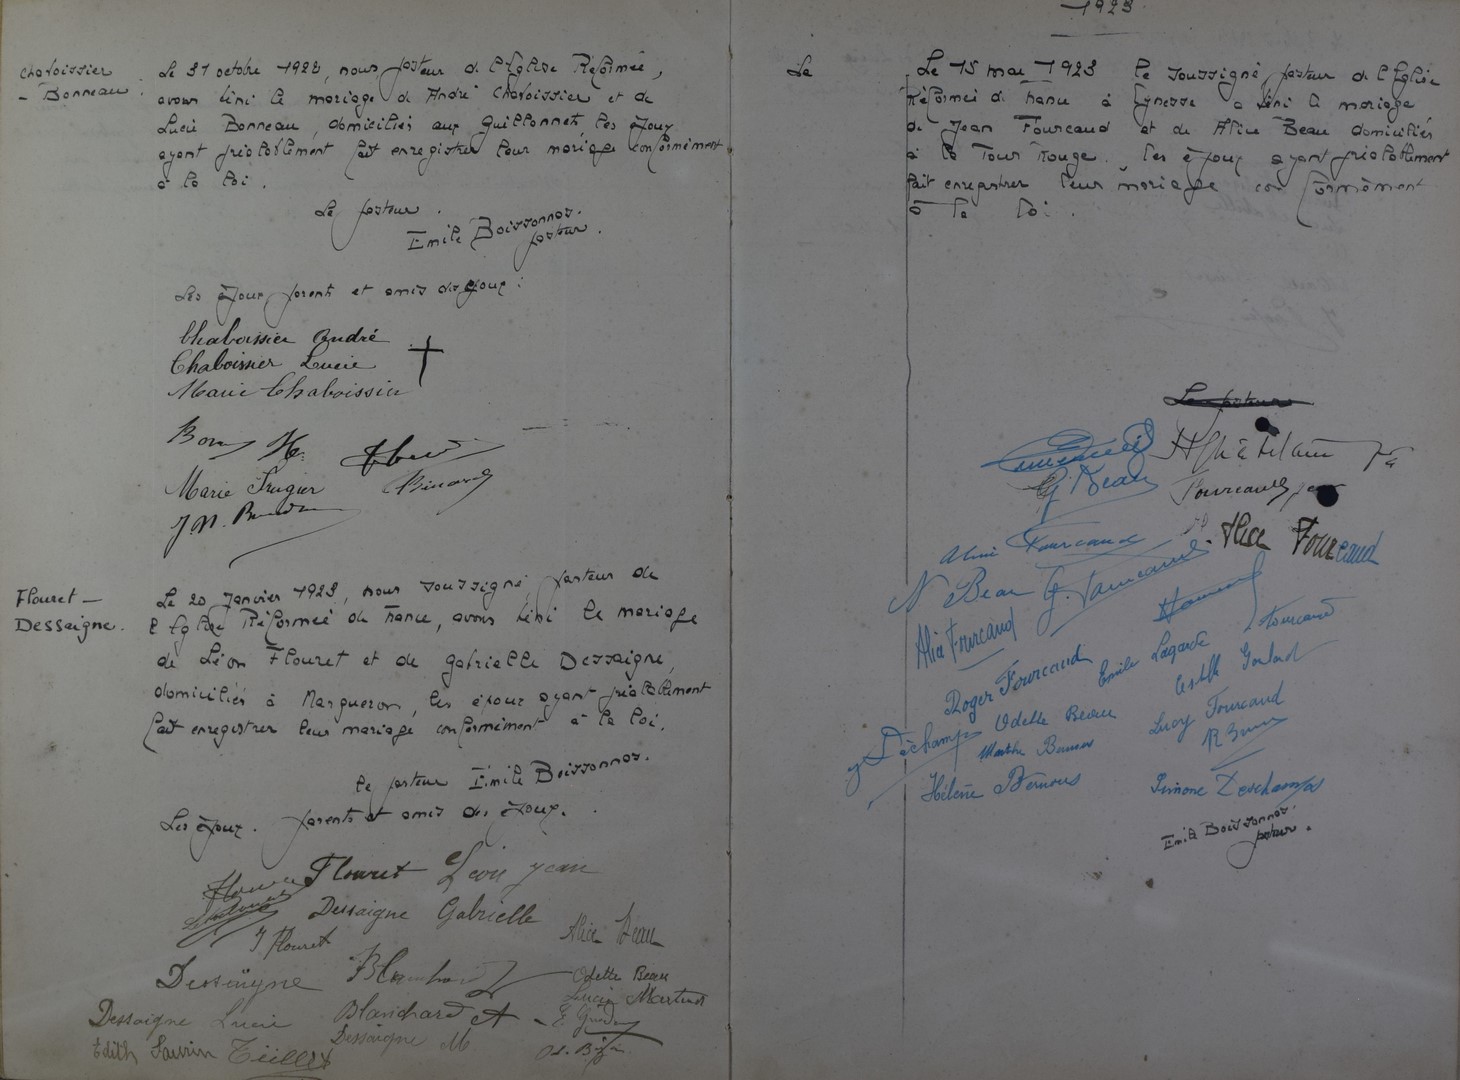 Chaboissier
- Bonneau.
Le 31 octobre 1922, nous pasteur de l'Eglise Réformée,
avons béni le mariage de André Chaboissier et de
Lucie Bonneau, domiciliés aux Guillonnets, les époux
ayant préalablement fait enregistrer leur mariage conformément
à la loi.
Le pasteur.
Emile Boissonnas.
pasteur.
Les époux, parents et amis des époux :
Chaboissier André
Chaboissier Lucie
Marie Chaboissier
Marie Trugier
Flouret -
Dessaigne.
Le 20 Janvier 1923, nous soussigné, pasteur de
l'Eglise Réformée de France, avons béni le mariage
de Léon Flouret et de Gabrielle Dessaigne,
domiciliés à Margueron, les époux ayant préalablement
fait enregistrer leur mariage conformément à la loi.
le pasteur Emile Boissonnas.
Les époux. parents et amis des époux.
Flouret Jean
Dessaigne Gabrielle
Alice Beau
Flouret
Dessaigne Blanchard
Odette Beau
Dessaigne Lucie Blanchard A
Dessaigne M
Edith
1923
Le
Le 15 mai 1923 le soussigné, pasteur de l'Eglise
Réformée de France à Eynesse a béni le mariage
de Jean Fourcaud et de Alice Beau domiciliés
à la Tour Rouge. les époux ayant préalablement
fait enregistrer leur mariage conformément
à la loi.
Le pasteur
G. Beau
Fourcaud
Alice Fourcaud
Fourcaud
N Beau G. Fourcaud
Alice Fourcaud
Roger Fourcaud
Emile Lagarde
Fourcaud
Estelle
Deschamps Odette Beau
Lucy Fourcaud
Marthe
Hélène Bernous
Simone Deschamps
Emile Boissonnas.
pasteur.